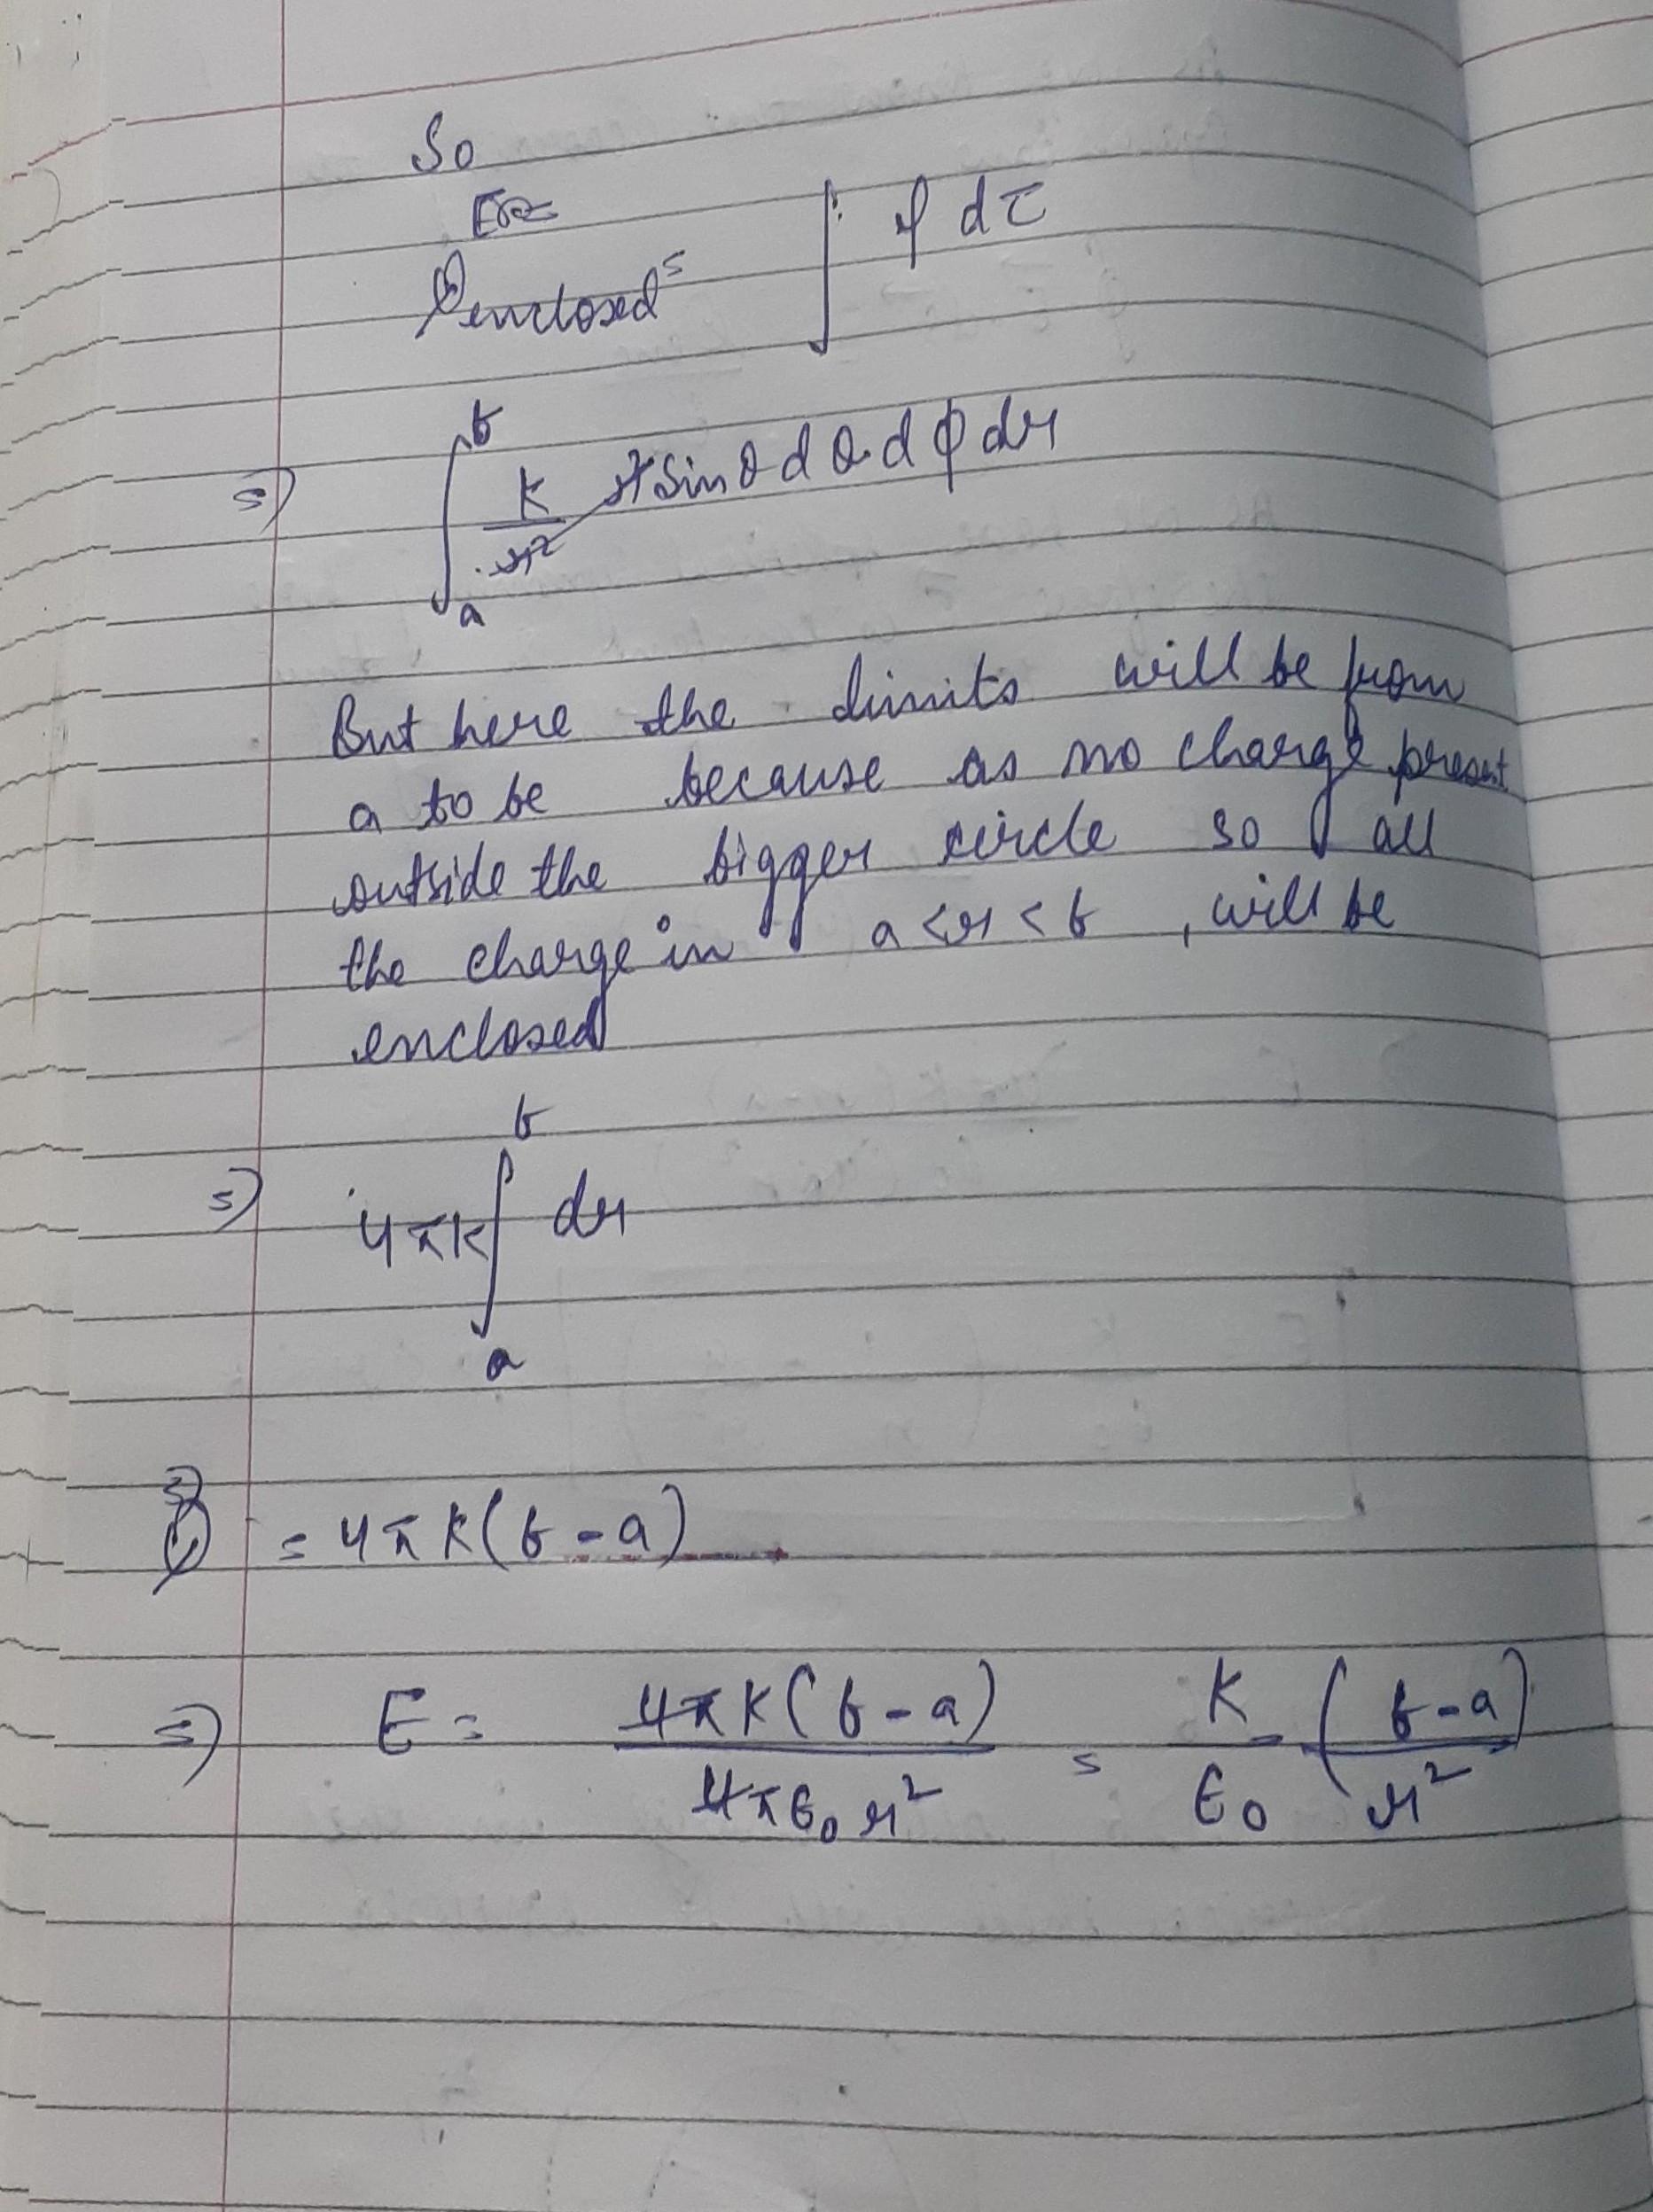 So
Qenclosed = ∫ ρ dτ
=) ∫ₐᵇ k/r² r² sinθ dθ dϕ dr
But here the limits will be from
a to be because as no charge present
outside the bigger circle so all
the charge in a < r < b , will be
enclosed
=) 4πk ∫ₐᵇ dr
=)
Q = 4πk(b-a)
=) E = 4πk(b-a)/4πϵ₀r² = k/ϵ₀ (b-a/r²)